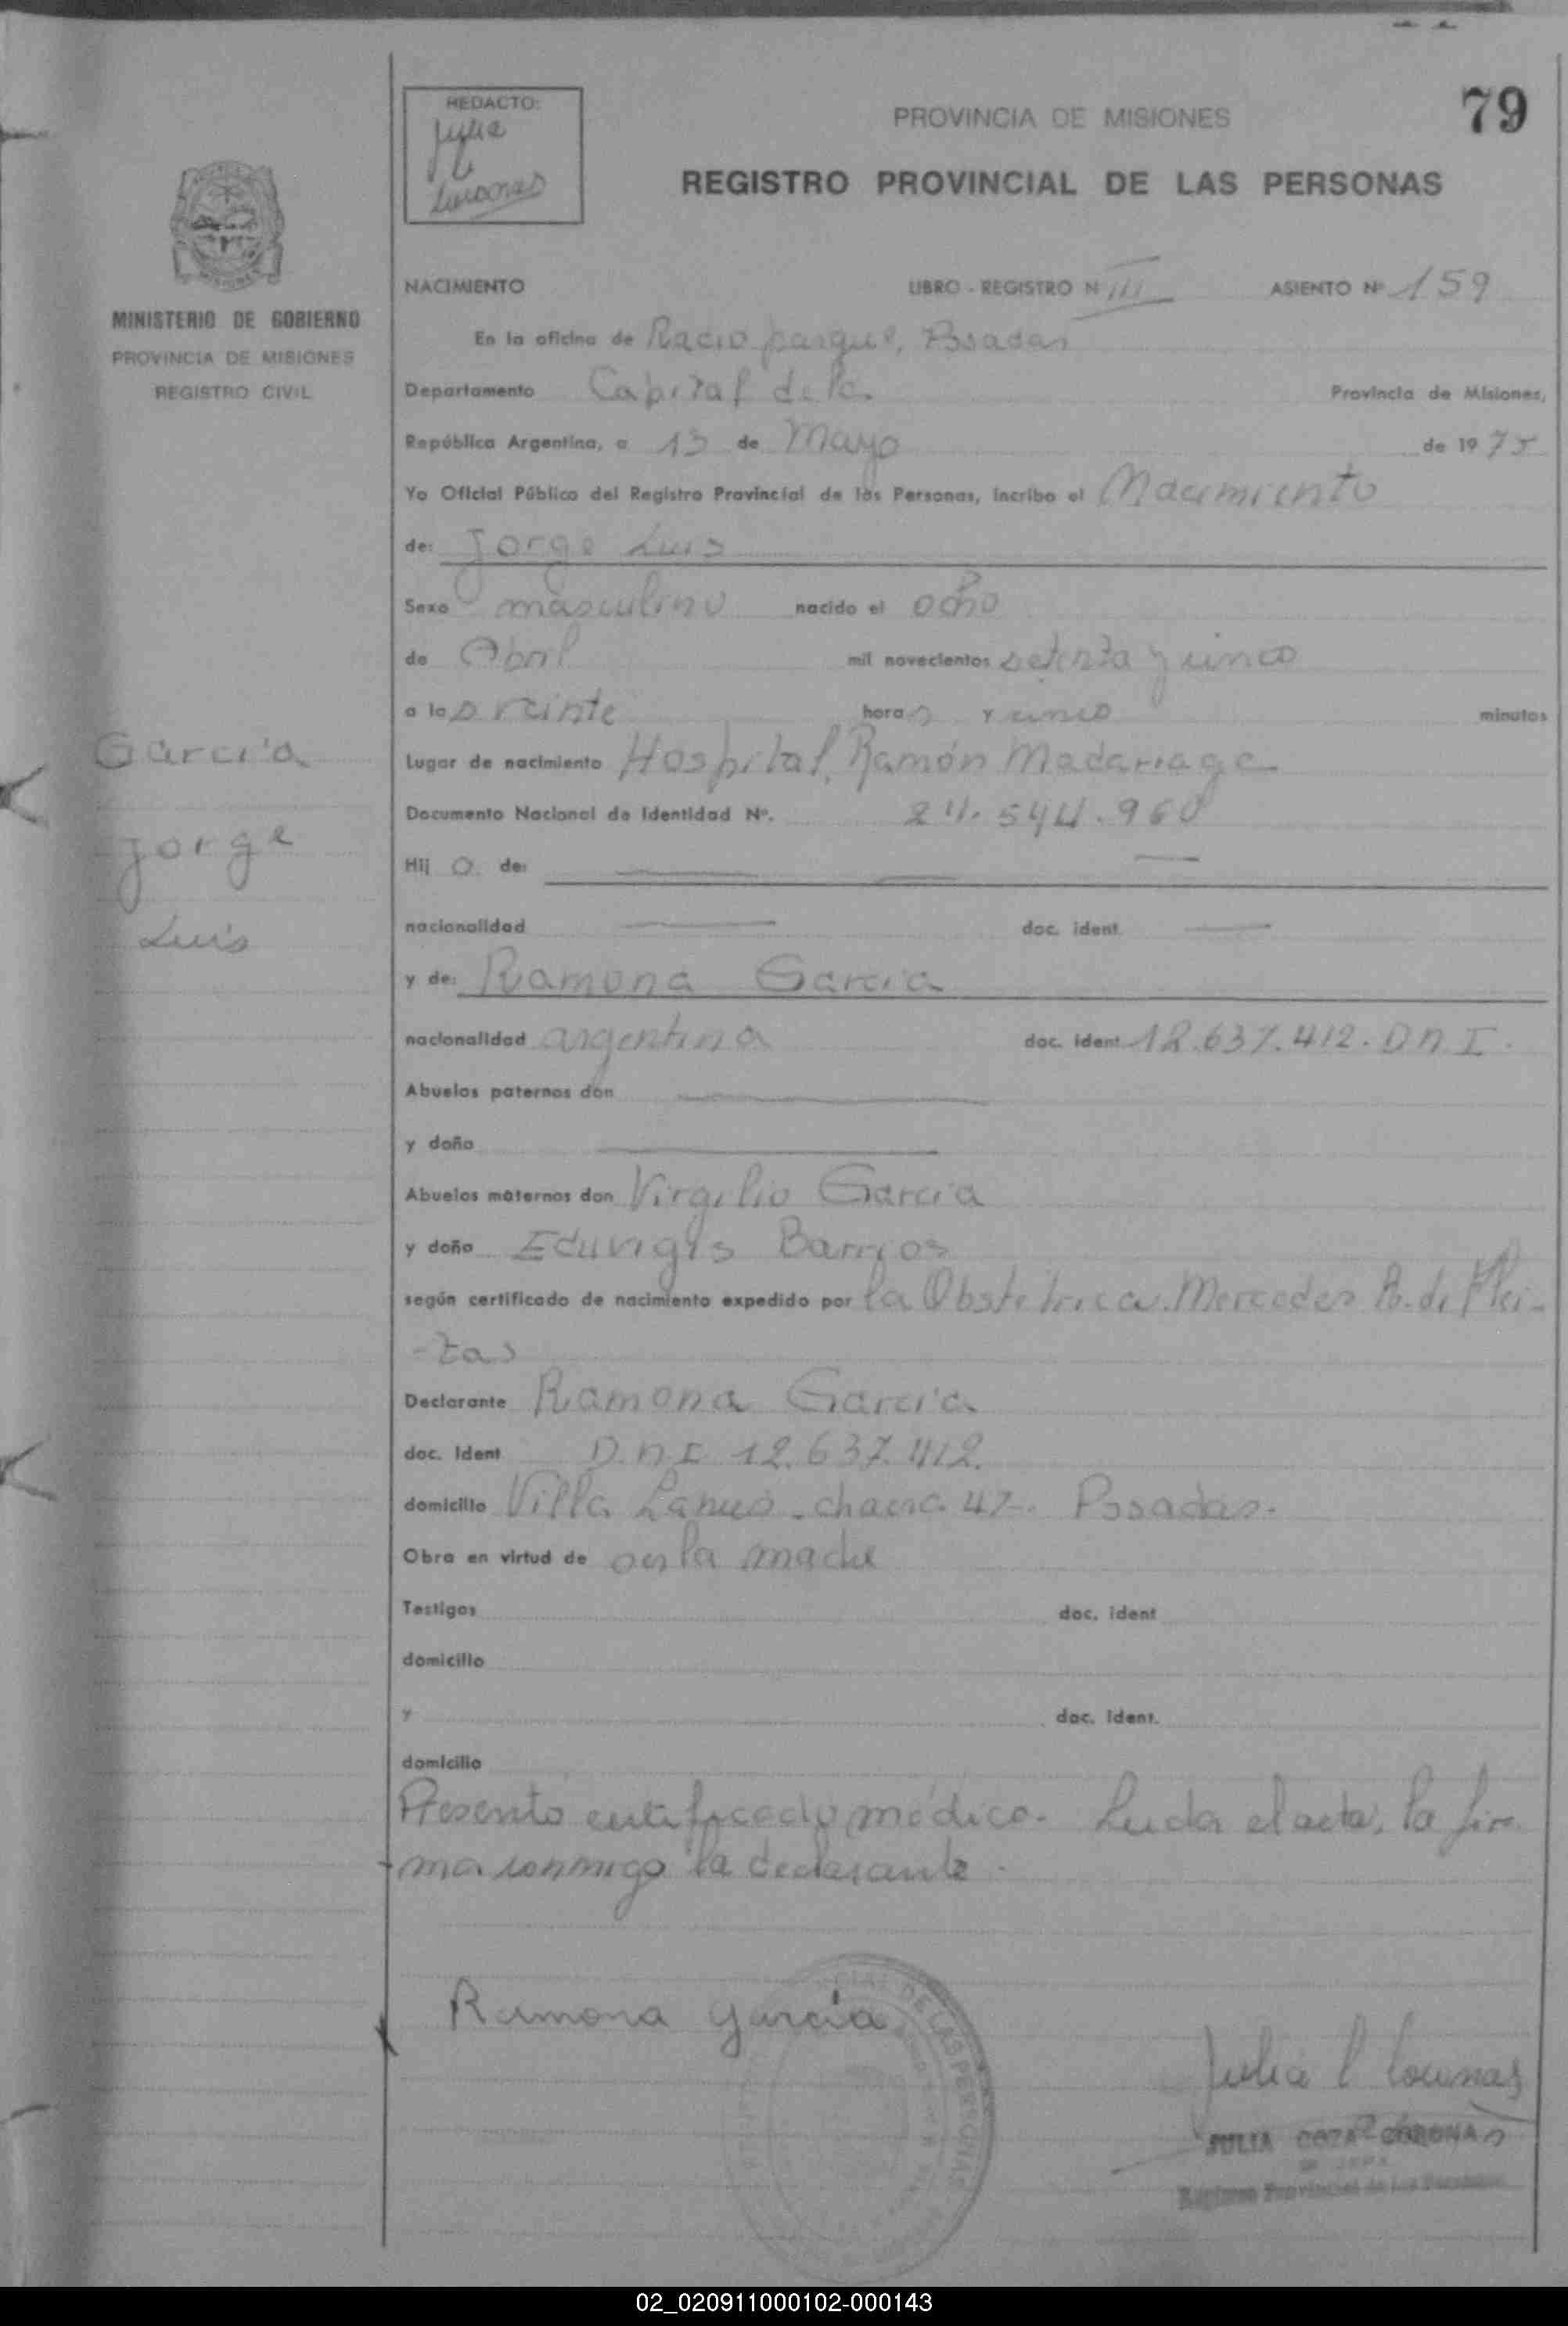 79
REDACTO:
Julia
Coronas
PROVINCIA DE MISIONES
REGISTRO PROVINCIAL DE LAS PERSONAS
MINISTERIO DE GOBIERNO
PROVINCIA DE MISIONES
REGISTRO CIVIL
García
Jorge
Luis
NACIMIENTO LIBRO - REGISTRO Nº III ASIENTO Nº 159
En la oficina de Racio parque, Posadas
Departamento Capital de la Provincia de Misiones,
República Argentina, a 13 de Mayo de 1975
Yo Oficial Público del Registro Provincial de las Personas, incribo el Nacimiento
de: Jorge Luis
Sexo masculino nacido el ocho
de Abril mil novecientos setenta y cinco
a las veinte horas y cinco minutos
Lugar de nacimiento Hospital Ramón Madariaga
Documento Nacional de Identidad Nº. 24.544.960
Hijo de:
nacionalidad doc. ident.
y de: Ramona García
nacionalidad argentina doc. ident. 12.637.412. D N I.
Abuelos paternos don
y doña
Abuelos maternos don Virgilio García
y doña Eduvigis Barrios
según certificado de nacimiento expedido por la Obstetrica Mercedes B. de Flei-
-tas
Declarante Ramona García
doc. Ident D.N.I. 12.637.412.
domicilio Villa Lanus - chacra 47 - Posadas.
Obra en virtud de ser la madre
Testigos doc. ident
domicilio
y doc. Ident.
domicilio
Presentó certificado médico. Leida el acta, la fir-
ma conmigo la declarante.
Ramona García
Julia C Coronas
JULIA CORONAS
Registro Provincial de las Personas
DE LAS PERSONAS
02_020911000102-000143